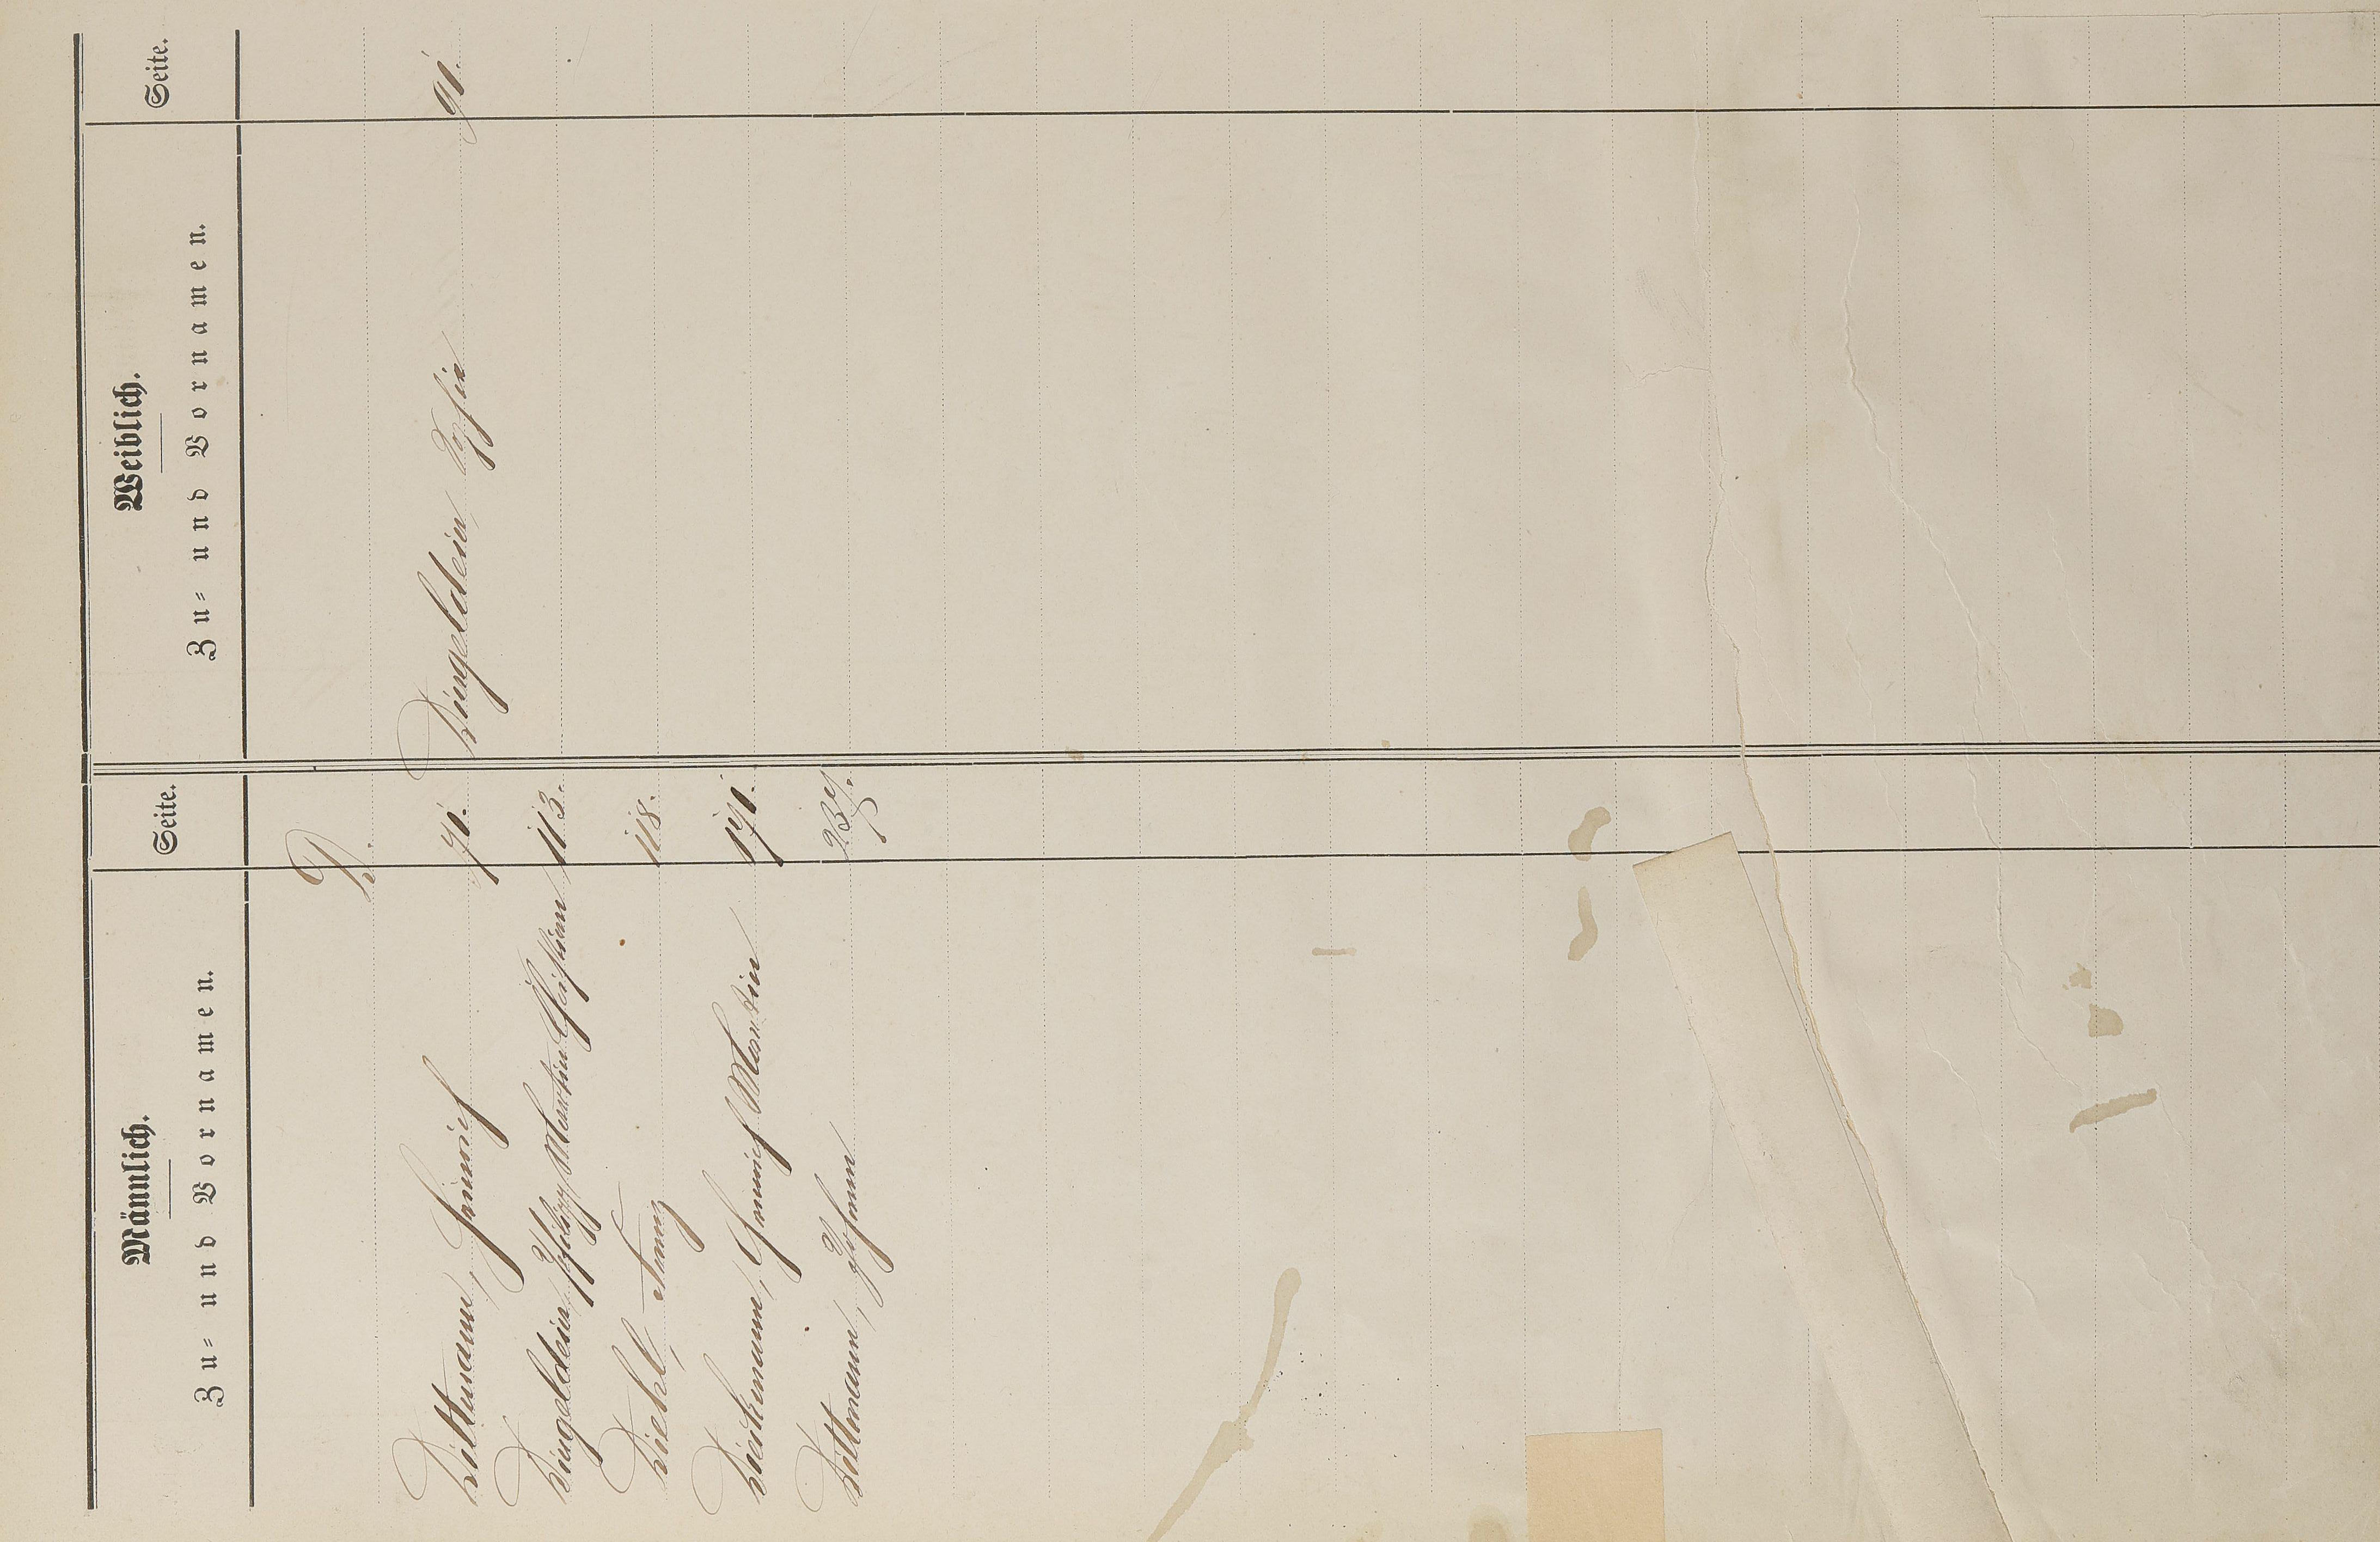 Männlich. Weiblich.
Zu- und Vornamen. Seite. Zu- und Vornamen. Seite.
D.
Dittmann, Heinrich 71. Dingeldein, Sofia 91.
Dingeldein, Philipp Martin Christian 113.
Diehl, Franz 118.
Dieckmann, Heinrich Martin 171.
Dittmann, Johann 237.